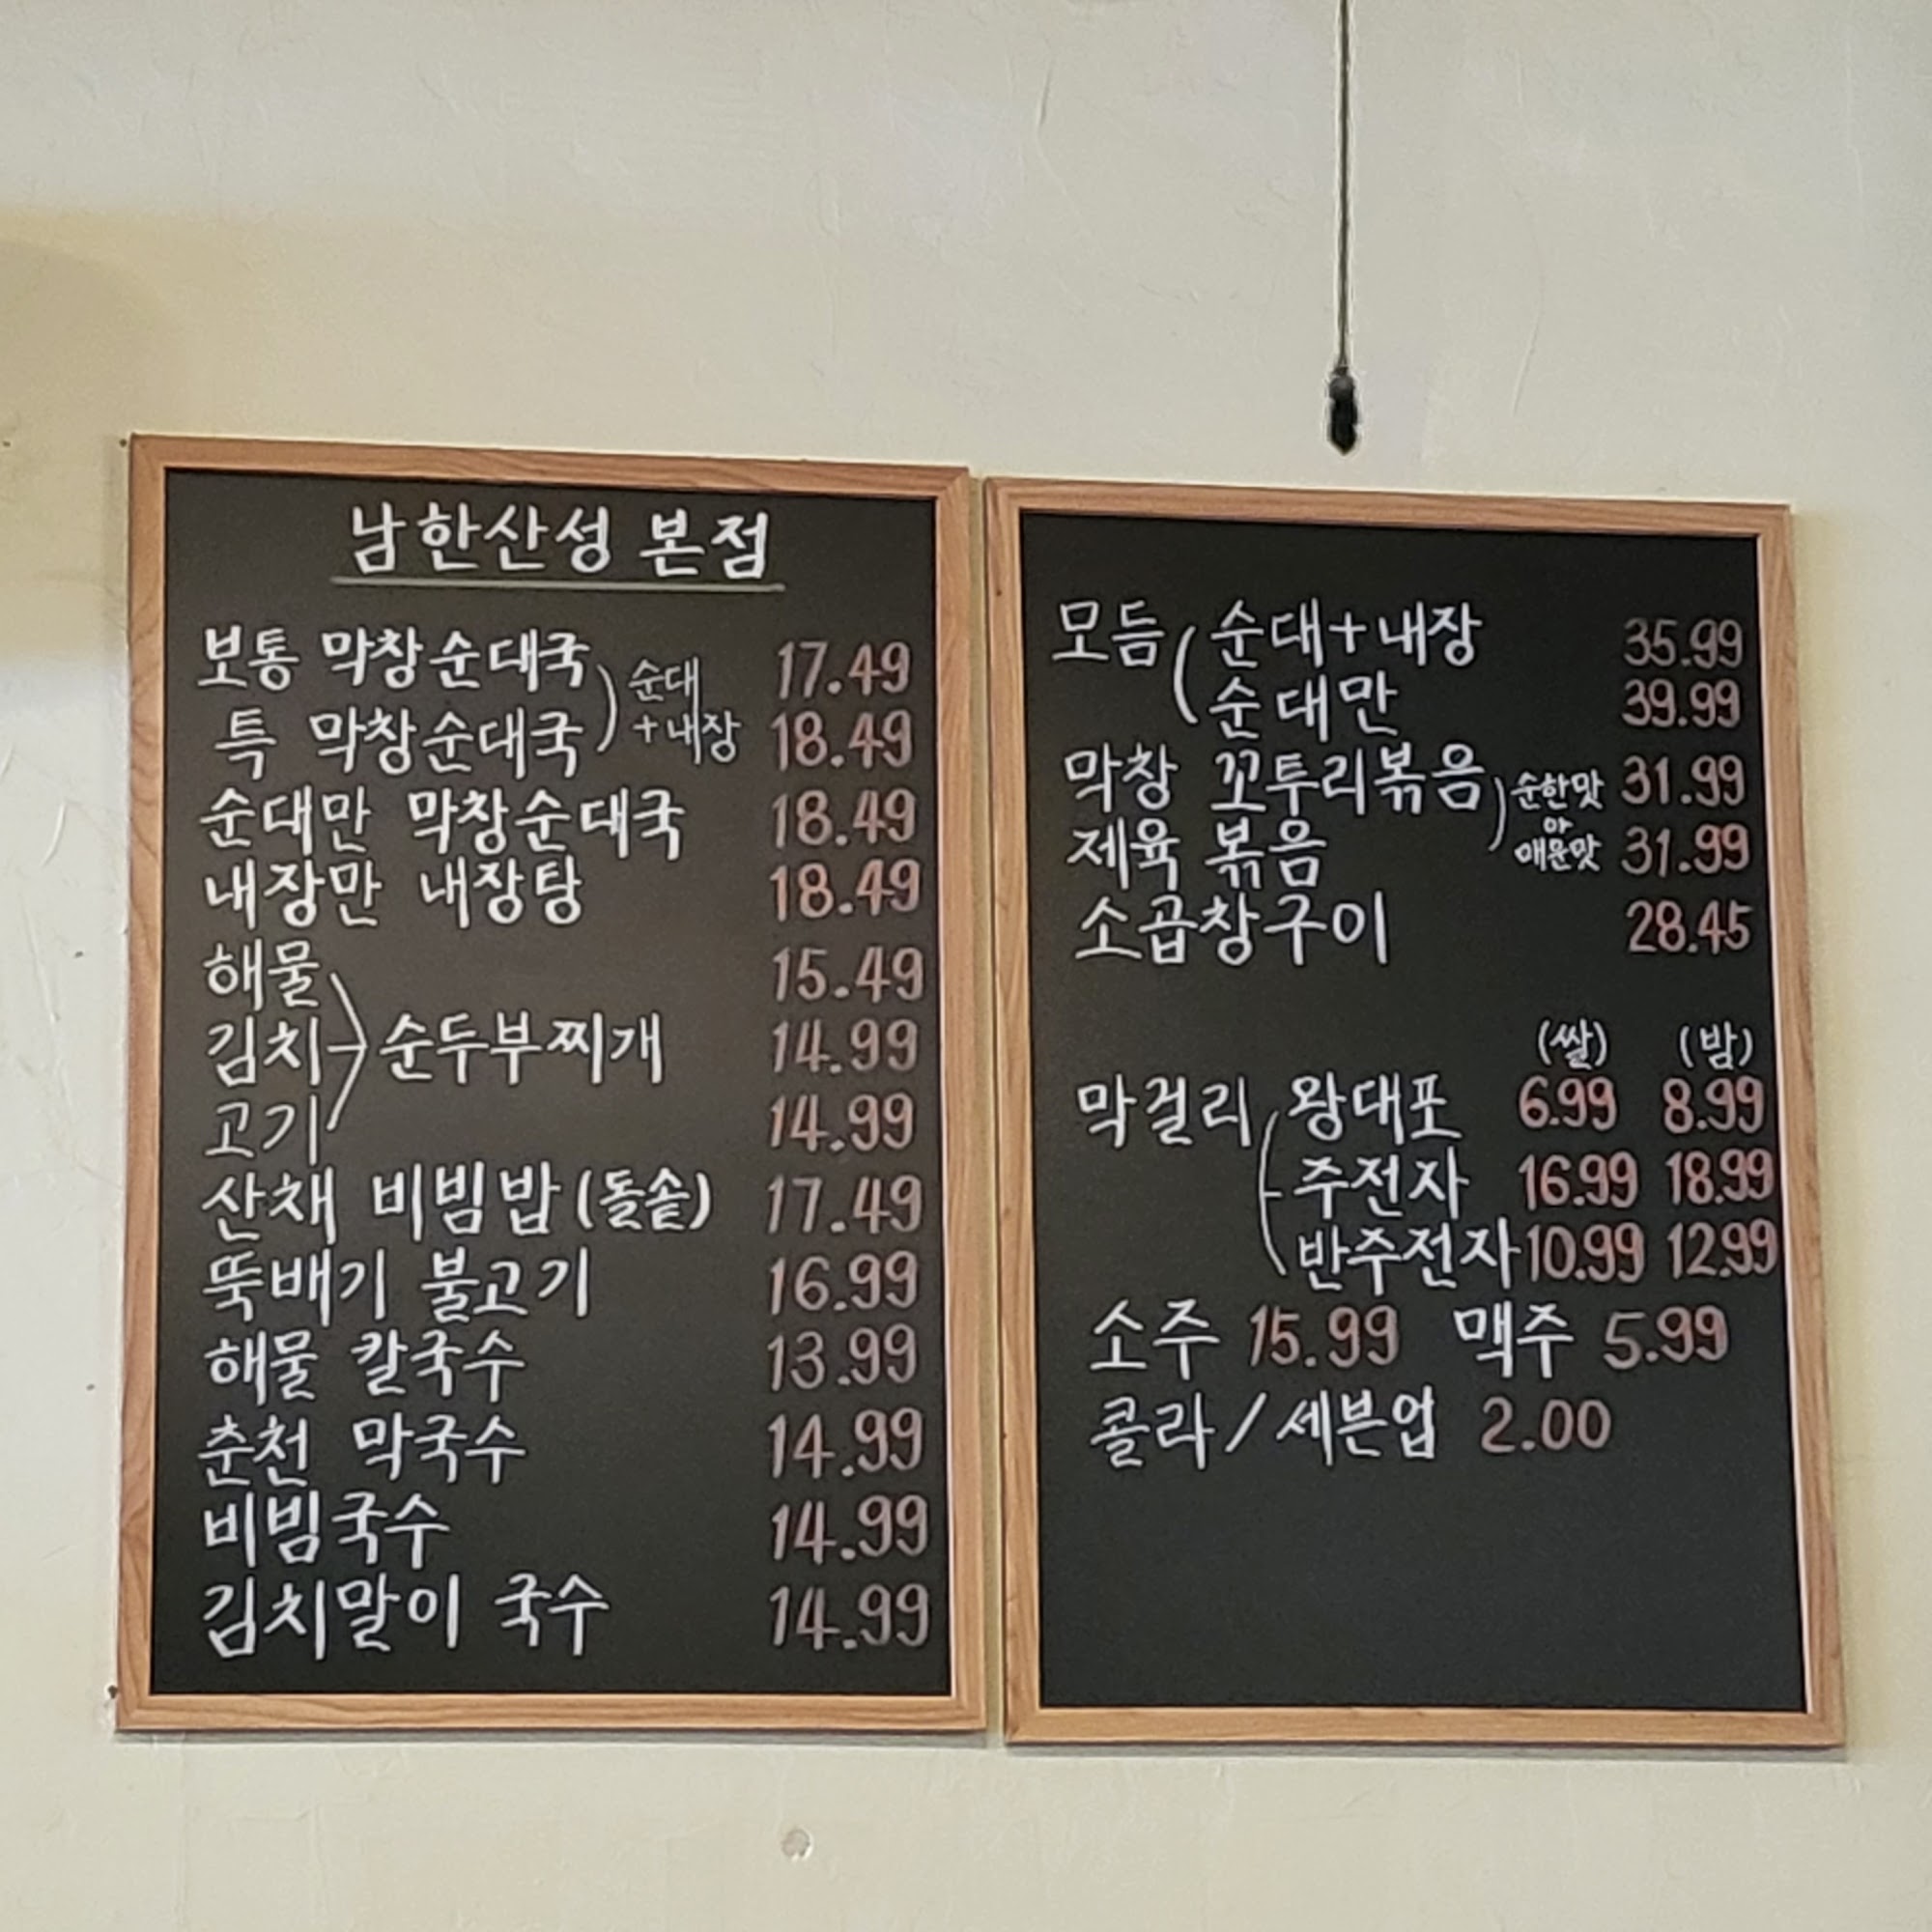 남한산성 본점
보통 막창순대국 17.49
특 막창순대국 18.49
순대
+내장
순대만 막창순대국 18.49
내장만 내장탕 18.49
해물 15.49
김치 순두부찌개 14.99
고기 14.99
산채 비빔밥 (돌솥) 17.49
뚝배기 불고기 16.99
해물 칼국수 13.99
춘천 막국수 14.99
비빔국수 14.99
김치말이 국수 14.99
모듬 ( 순대+내장 35.99
순대만 39.99
막창 꼬투리볶음 31.99
제육 볶음 31.99
순한맛
매운맛
소곱창구이 28.45
(쌀) (밤)
막걸리 왕대포 6.99 8.99
주전자 16.99 18.99
반주전자 10.99 12.99
소주 15.99 맥주 5.99
콜라 / 세븐업 2.00